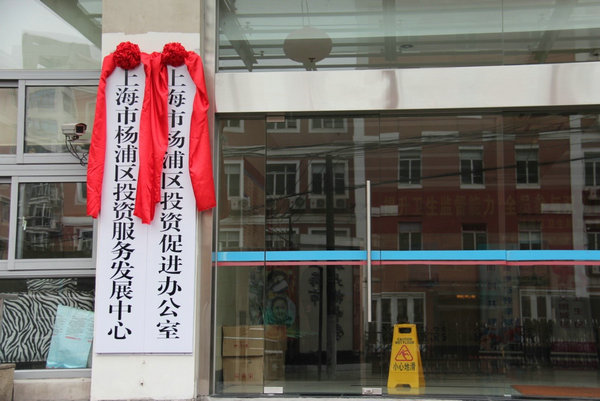 上海市杨浦区投资服务发展中心
上海市杨浦区投资促进办公室
卫生监督
CAUTION
WET FLOOR
小心地滑